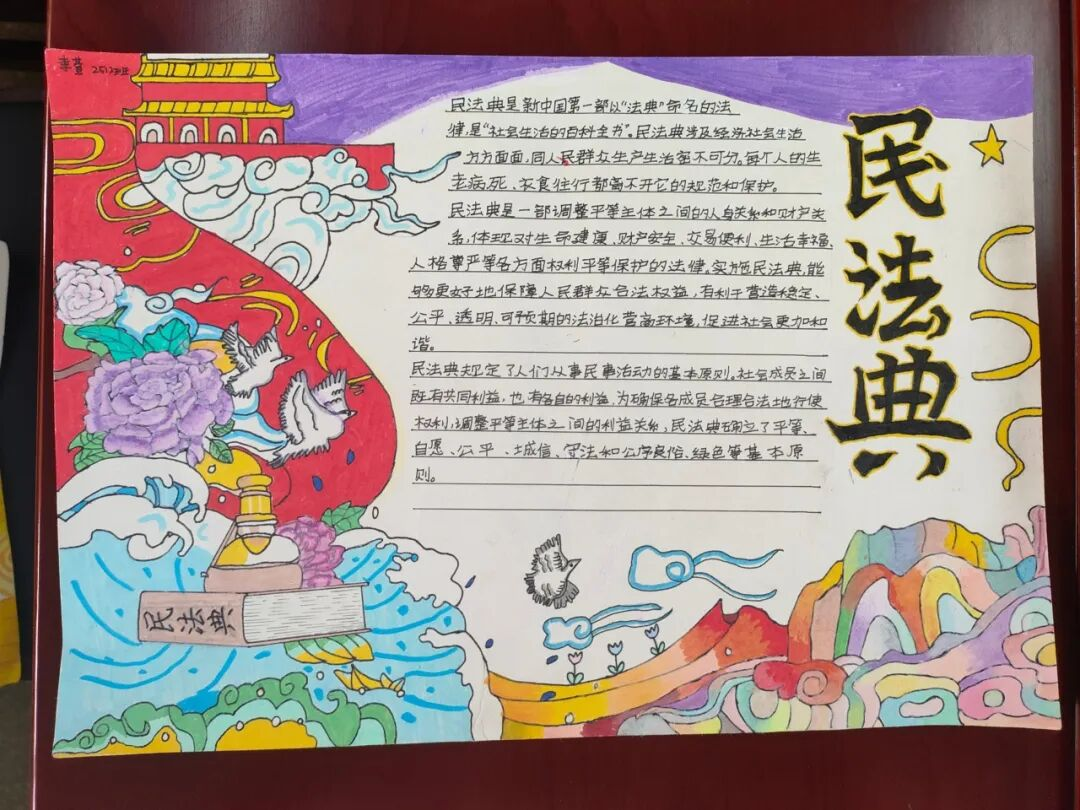 2512班
民法典是新中国第一部以“法典”命名的法
律,是“社会生活的百科全书”。民法典涉及经济社会生活
方方面面,同人民群众生产生活密不可分。每个人的生
老病死、衣食住行都离不开它的规范和保护。
民法典是一部调整平等主体之间的人身关系和财产关
系,体现对生命健康、财产安全、交易便利、生活幸福、
人格尊严等各方面权利平等保护的法律。实施民法典,能
够更好地保障人民群众合法权益,有利于营造稳定、
公平、透明、可预期的法治化营商环境,促进社会更加和
谐。
民法典规定了人们从事民事活动的基本原则。社会成员之间
既有共同利益,也有各自的利益,为确保各成员合理合法地行使
权利,调整平等主体之间的利益关系,民法典确立了平等、
自愿、公平、诚信、守法和公序良俗、绿色等基本原
则。
民法典
民法典